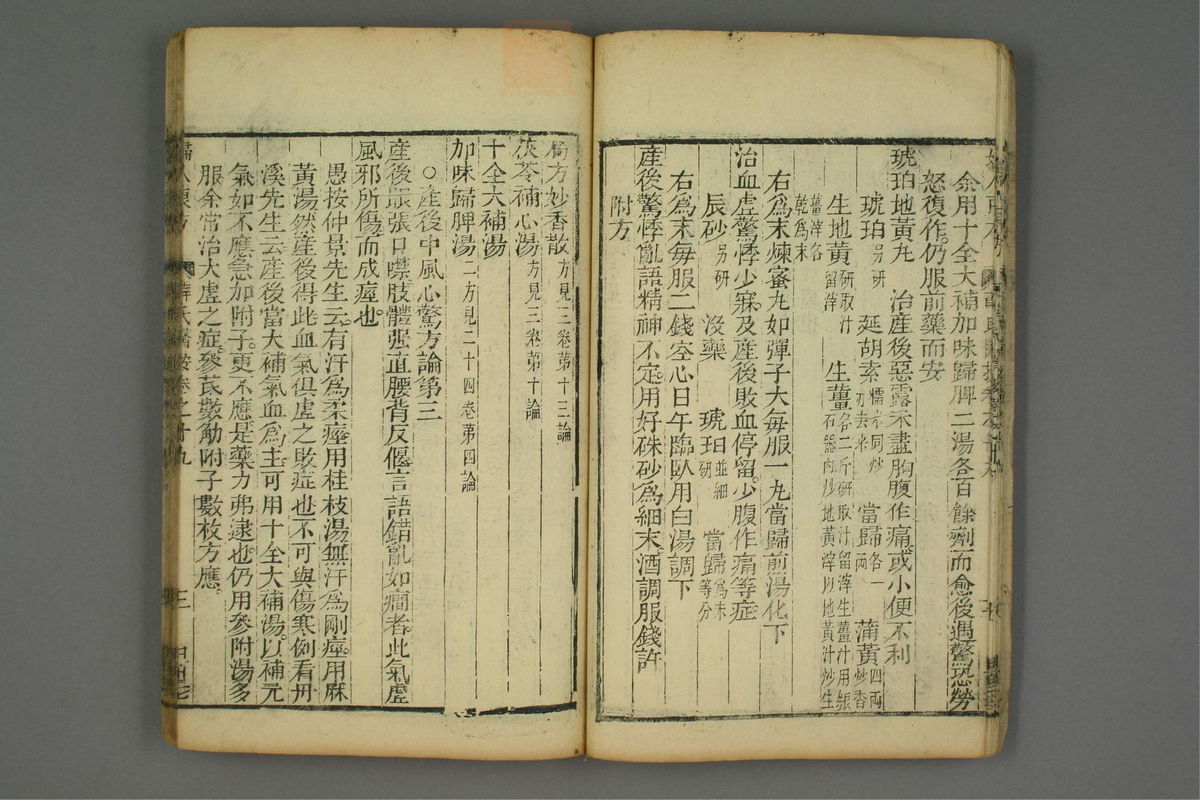 余用十全大補加味歸脾二湯各百餘劑而愈後遇驚恐勞
怒復作仍服前藥而安
琥珀地黃丸　治產後惡露未盡胸腹作痛或小便不利
琥珀另研　延胡索糯米同炒赤去米　當歸各一兩　蒲黃四兩炒香
生地黃研取汁留滓　生薑各二斤研取汁留滓生薑汁用銀石器內炒地黃滓以地黃汁炒生
薑滓各乾爲末
右爲末煉蜜丸如彈子大每服一丸當歸煎湯化下
治血虛驚悸少寐及產後敗血停留少腹作痛等症
辰砂另研　沒藥　琥珀並細研　當歸爲末等分
右爲末每服二錢空心日午臨臥用白湯調下
產後驚悸亂語精神不定用好硃砂爲細末酒調服錢許
附方
局方妙香散方見三卷第十三論
茯苓補心湯方見三卷第十論
十全大補湯
加味歸脾湯二方見二十四卷第四論
○產後中風心驚方論第三
產後最張口噤肢體强直腰背反偃言語錯亂如癎者此氣虛
風邪所傷而成痙也
愚按仲景先生云有汗爲柔痙用桂枝湯無汗爲剛痙用麻
黃湯然產後得此血氣俱虛之敗症也不可與傷寒例看丹
溪先生云產後當大補氣血爲主可用十全大補湯以補元
氣如不應急加附子更不應是藥力弗逮也仍用參附湯多
服余常治大虛之症參芪數觔附子數枚方應
婦人良方　薛氏醫按卷之十九　三